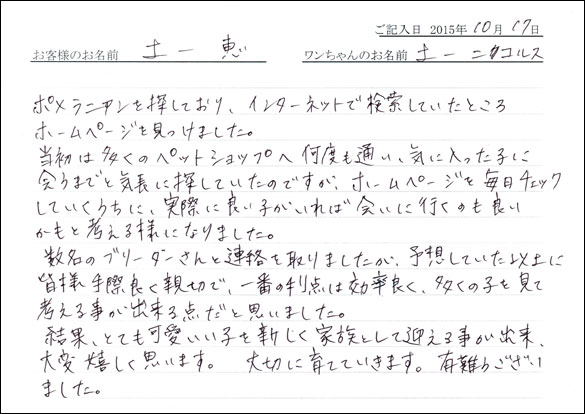 ご記入日 2015年 10月 17日
お客様のお名前 土一 恵 ワンちゃんのお名前 土一 ニコルス
ポメラニアンを探しており、インターネットで検索していたところ
ホームページを見つけました。
当初は多くのペットショップへ何度も通い、気に入った子に
会うまでと気長に探していたのですが、ホームページを毎日チェック
していくうちに、実際に良い子がいれば会いに行くのも良い
かもと考える様になりました。
数名のブリーダーさんと連絡を取りましたが、予想していた以上に
皆様手際良く親切で、一番の利点は効率良く、多くの子を見て
考える事が出来る点だと思いました。
結果、とても可愛いい子を新しく家族として迎える事が出来、
大変嬉しく思います。 大切に育てていきます。有難うござい
ました。